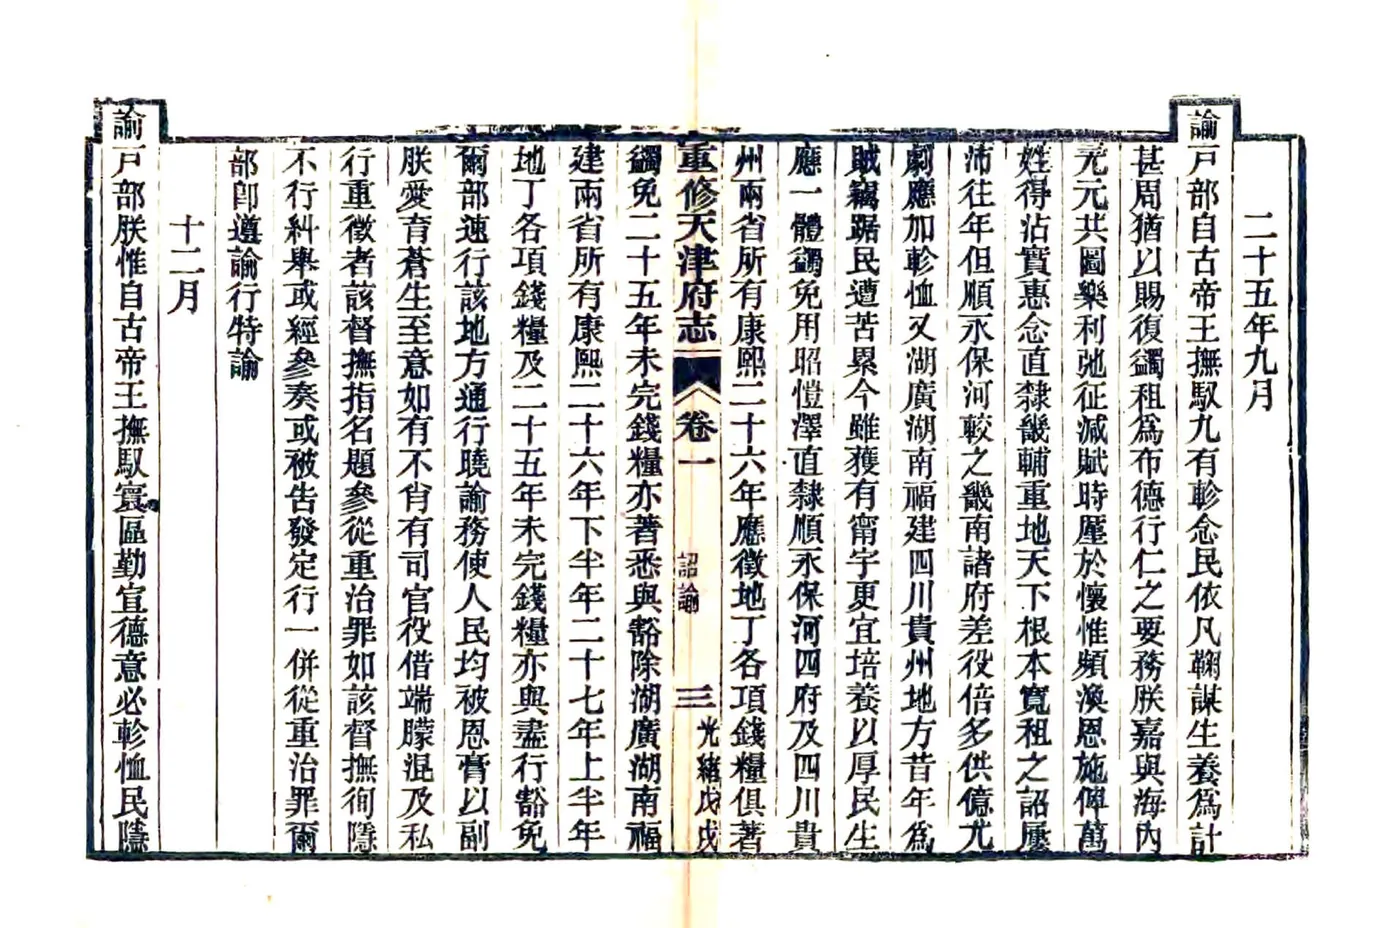 二十五年九月
諭戸部自古帝王撫馭九有軫念民依凡鞠謀生養爲計
甚周猶以賜復蠲租爲布德行仁之要務朕嘉與海內
元元共圖樂利弛征減賦時厪於懷惟頻渙恩施俾萬
姓得沾實惠念直隸畿輔重地天下根本寬租之詔屢
沛往年但順永保河較之畿南諸府差役倍多供億尤
劇應加軫恤又湖廣湖南福建四川貴州地方昔年爲
賊竊踞民遭苦累今雖獲有甯宇更宜培養以厚民生
應一體蠲免用昭愷澤直隸順永保河四府及四川貴
州兩省所有康熙二十六年應徵地丁各項錢糧俱著
重修天津府志 卷一 詔諭 三 光緒戊戌
蠲免二十五年未完錢糧亦著悉與豁除湖廣湖南福
建兩省所有康熙二十六年下半年二十七年上半年
地丁各項錢糧及二十五年未完錢糧亦與盡行豁免
爾部速行該地方通行曉諭務使人民均被恩膏以副
朕愛育蒼生至意如有不肖有司官役借端朦混及私
行重徵者該督撫指名題參從重治罪如該督撫徇隱
不行糾舉或經參奏或被告發定行一併從重治罪爾
部卽遵諭行特諭
十二月
諭戸部朕惟自古帝王撫馭寰區勤宣德意必軫恤民隱